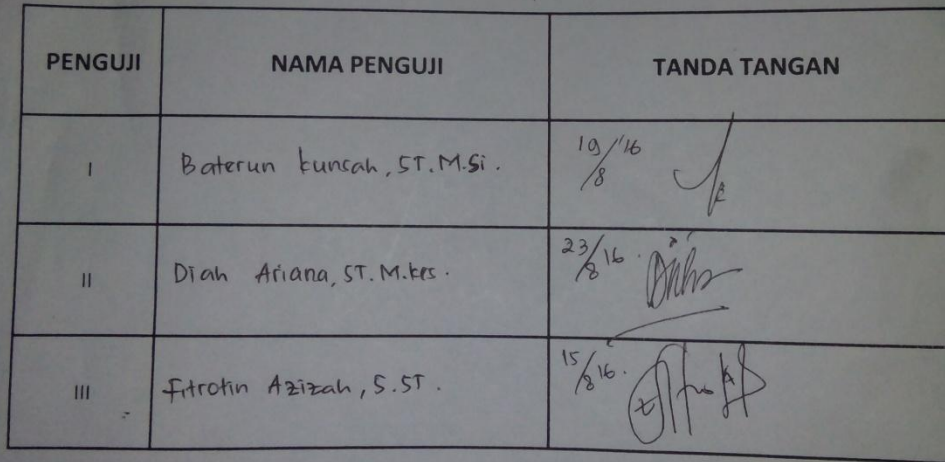 PENGUJI NAMA PENGUJI TANDA TANGAN
I Baterun kunsah, ST. M.Si. 19/8 '16
II Diah Ariana, ST. M.kes. 23/8 16.
III Fitrotin Azizah, S.ST. 15/8 16.